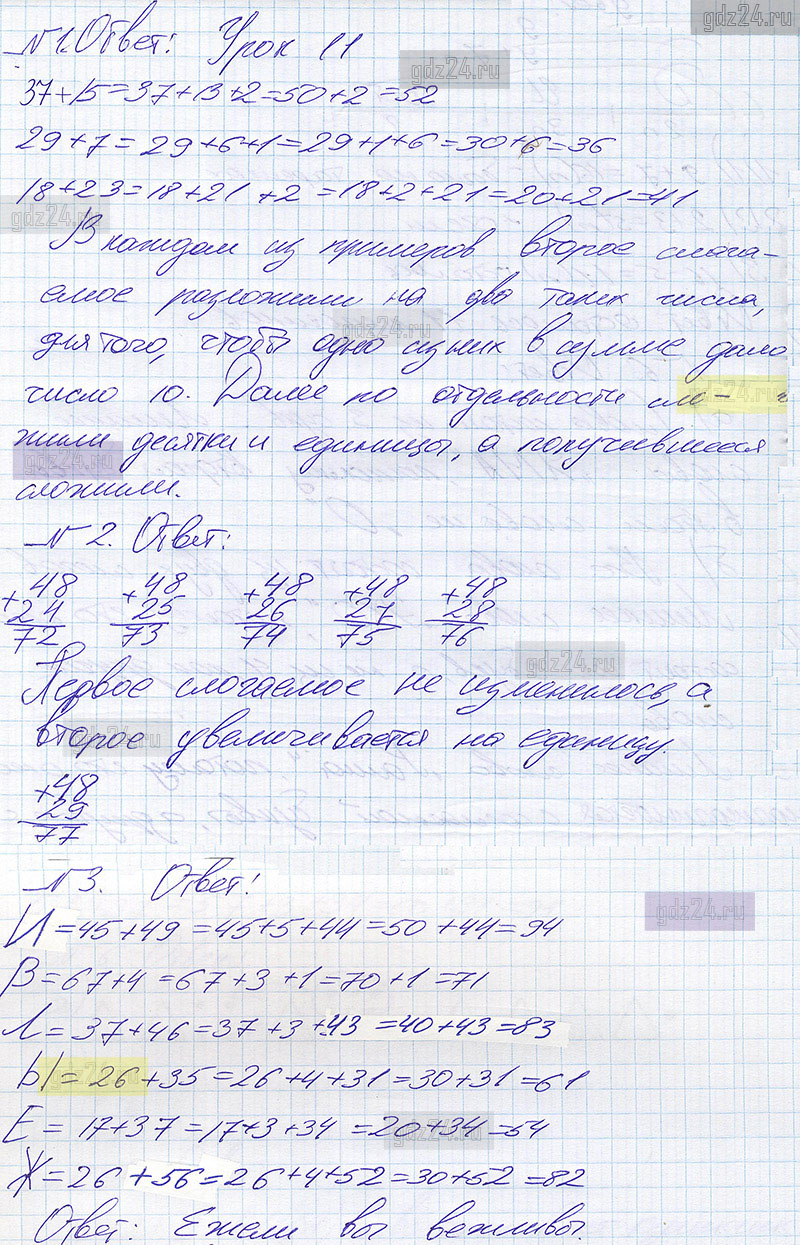 gdz24.ru
№1. Ответ: Урок 11
gdz24.ru
37+15=37+13+2=50+2=52
29+7=29+6+1=29+1+6=30+6=36
18+23=18+21+2=18+2+21=20+21=41
gdz24.ru
В каждом из примеров второе слага-
емое разложили на два таких числа,
gdz24.ru
для того, чтобы одно из них в сумме дало
число 10. Далее по отдельности сло-
gdz24.ru
жили десятки и единицы, а получившееся
gdz24.ru
сложили.
№2. Ответ:
+48 +48 +48 +48 +48
24 25 26 27 28
72 73 74 75 76
gdz24.ru
Первое слагаемое не изменилось, а
второе увеличивается на единицу.
gdz24.ru
+48
29
77
№3. Ответ:
gdz24.ru
И=45+49=45+5+44=50+44=94
В=67+4=67+3+1=70+1=71
Л=37+46=37+3+43=40+43=83
Ы=26+35=26+4+31=30+31=61
Е=17+37=17+3+34=20+34=54
gdz24.ru
Ж=26+56=26+4+52=30+52=82
Ответ: Ежели вы вежливы.